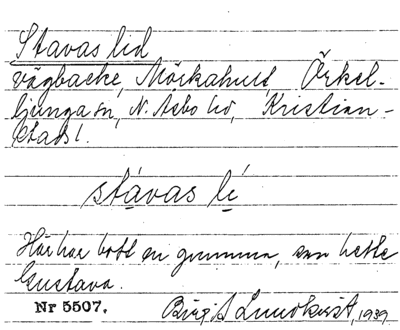 Stavas lid
vägbacke, Mörkahuld, Örkel-
ljunga sn, N. Åsbo hd, Kristian-
stads l.
stávas lí
Här har bott en gumma, som hette
Gustava.
Nr 5507. Birgit Lundkvist, 1939